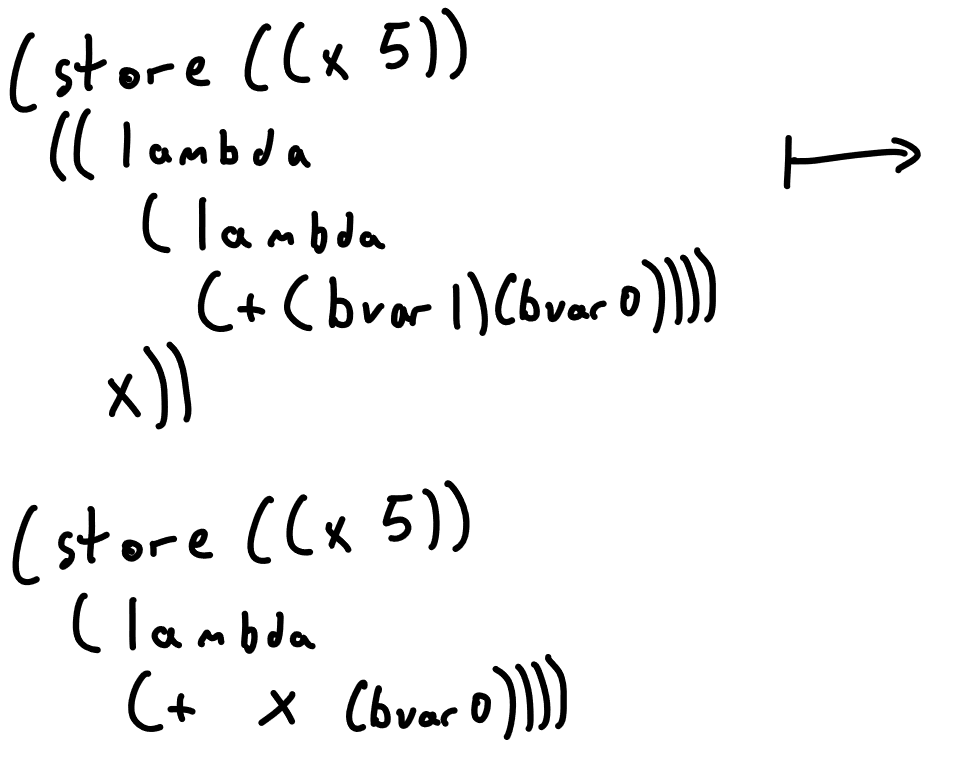 (store ((x 5))
((lambda
(lambda
(+ (bvar 1)(bvar 0))))
x))
↦
(store ((x 5))
(lambda
(+ x (bvar 0))))